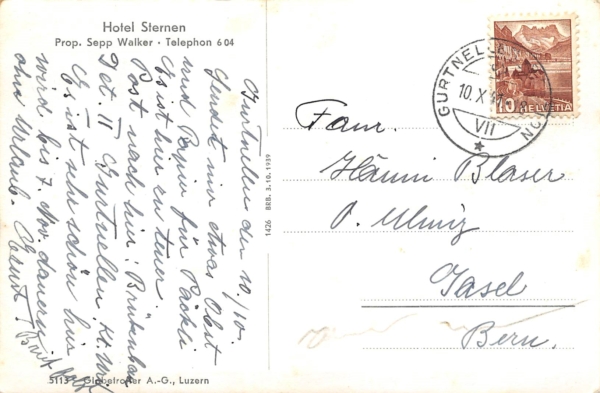 Hotel Sternen
Prop. Sepp Walker · Telephon 6 04
Gurtnellen den 10/10.
Sendet mir etwas Obst
und Papier für Päckli
Es ist hier zu teuer.
Post nach hier: Brückenbau
Det. II Gurtnellen Kt. Uri
Es ist sehr schön hier
wird bis 7. Nov. dauern
ohne Urlaub.
1426 BRB. 3.10.1939
5113 Globetrotter A.-G., Luzern
GURTNELLEN
10. X
VII
10 HELVETIA
Fam.
Hänni Blaser
O. Ulmiz
Gasel
Bern.